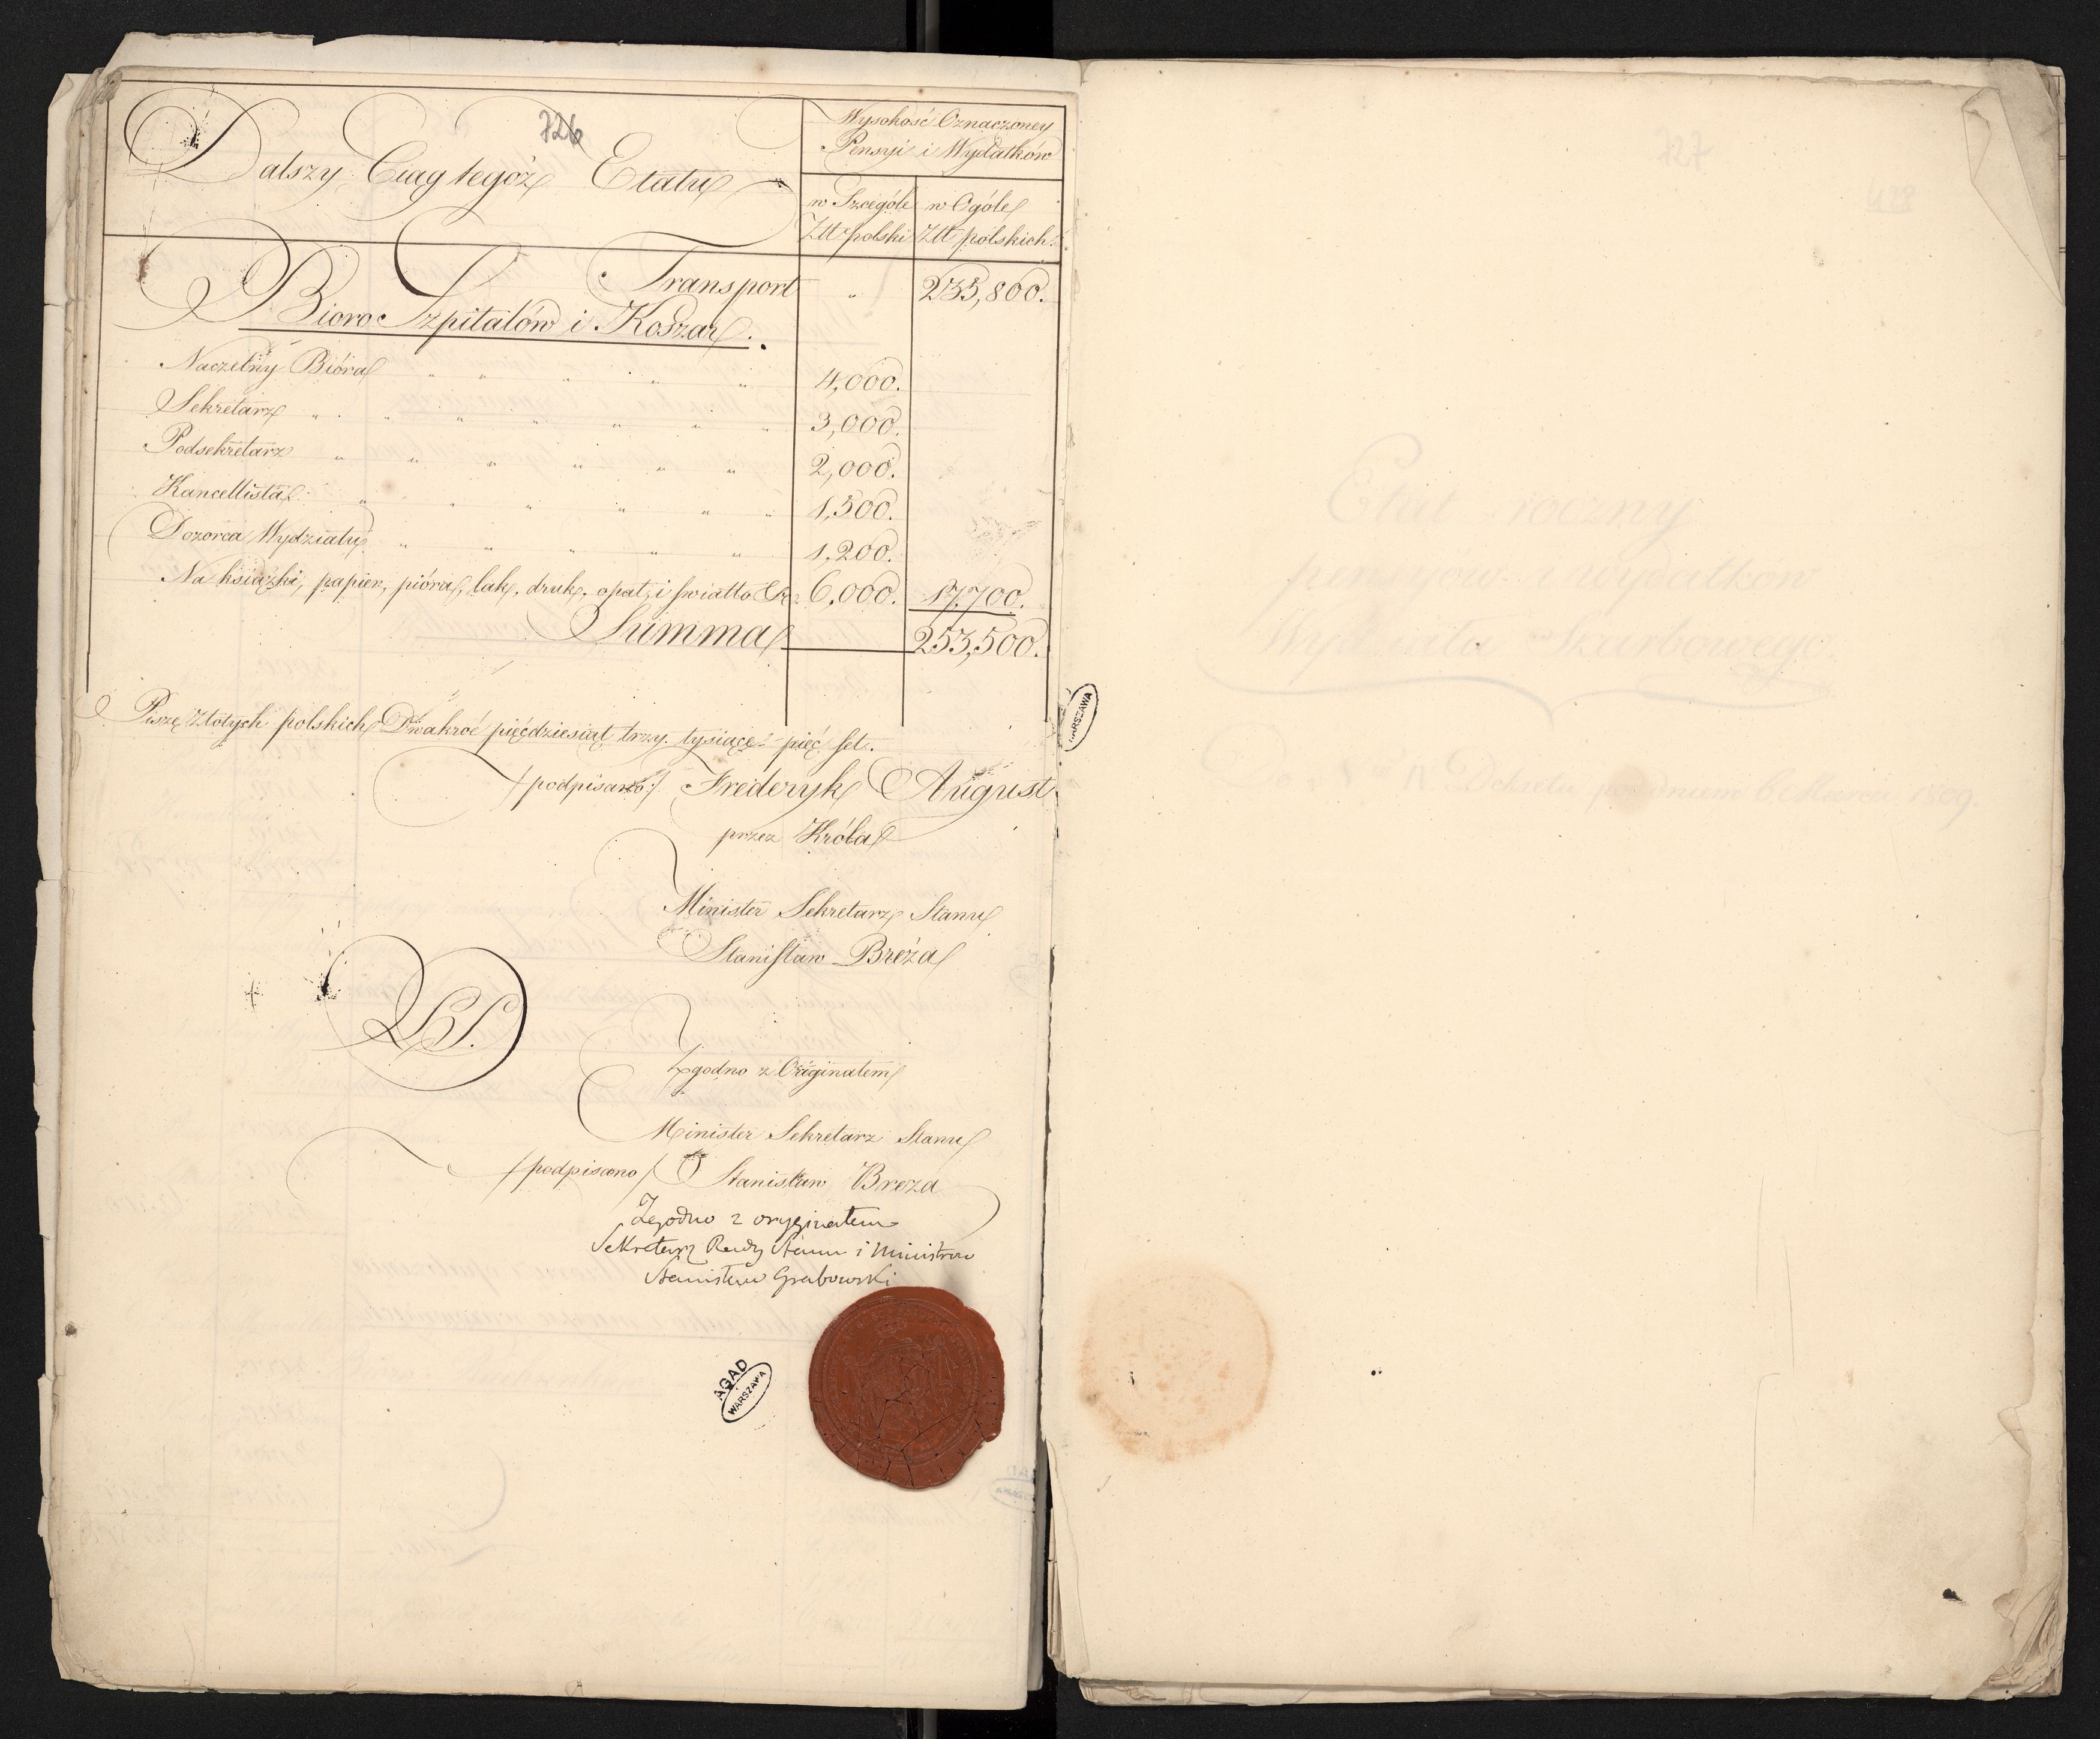 726
Dalszy Ciąg tegóż Etatu
Wysokość Oznaczoney
Pensyi i Wydatków
w Szcególe w Ogóle
Złł polski Złł pólskich
Transport " 235,800.
Bioro Szpitalów i Koszar.
Naczelny Bióra " " " " " 4,000.
Sekretarz " " " " " " " 3,000.
Podsekretarz " " " " " " 2,000.
Kancellista " " " " " " 1,500.
Dozorca Wydziału " " " " " 1,200.
Na książki, papier, pióra, lak, druk, opał, i swiatło &c 6,000. 17,700.
Summa 253,500.
Piszę Złotych polskich Dwakroć pięćdziesiąt trzy tysiące pięć set.
/podpisano:/ Frederyk August
przez Króla
Minister Sekretarz Stanu
Stanisław Breża
LS.
Zgodno z Originałem
Minister Sekretarz Stanu
/podpisano/ Stanisław Breza
Zgodno z oryginałem
Sekretarz Rady Stanu i Ministrów
Stanisław Grabowski
AGAD
WARSZAWA
WARSZAWA
127
Etat roczny
pensyów i wydatków
Wydziału Skarbowego
Do N IV Dekretu pod dniem 6 Marca 1809.